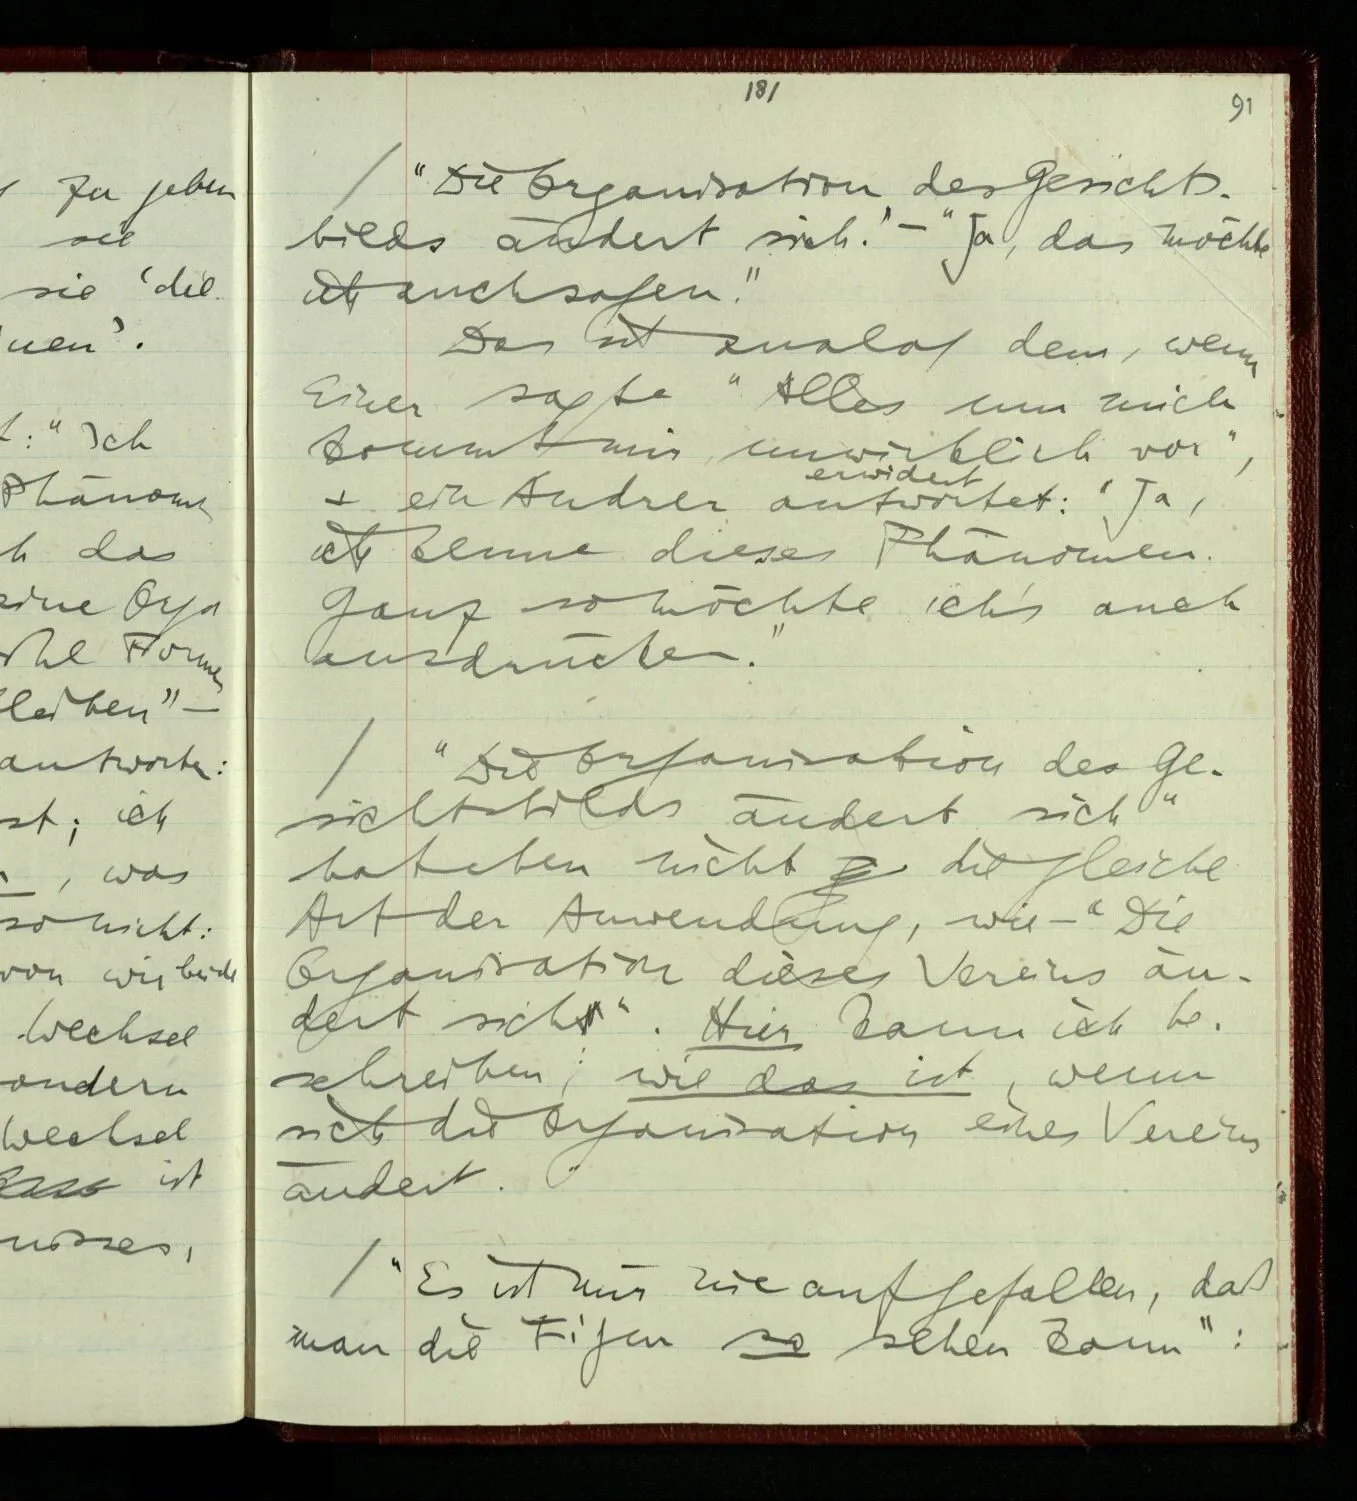 181
91
zu geben
sie
sie ‘die
nen’.
t: “Ich
Phänomen
h das
eine Orga
Forme
leiben” –
antworte:
st; ich
, was
so nicht:
von wir beide
Wechsel
sondern
Wechsel
ist
nisses,
/ “Die Organisation des Gesichts-
bilds ändert sich.” – “Ja, das möchte
ich auch sagen.”
Das ist analog dem, wenn
Einer sagte “Alles um mich
kommt mir unwirklich vor”,
erwidert
+ ein Andrer antwortet: “Ja,
ich kenne dieses Phänomen.
Ganz so möchte ich's auch
ausdrücken.”
/ “Die Organisation des Ge-
sichtsbilds ändert sich”
hat eben nicht die gleiche
Art der Anwendung, wie – “Die
Organisation dieses Vereins än-
dert sich”. Hier kann ich be-
schreiben; wie das ist, wenn
sich die Organisation eines Vereins
ändert.
/ “Es ist mir nie aufgefallen, daß
man die Figur so sehen kann”: